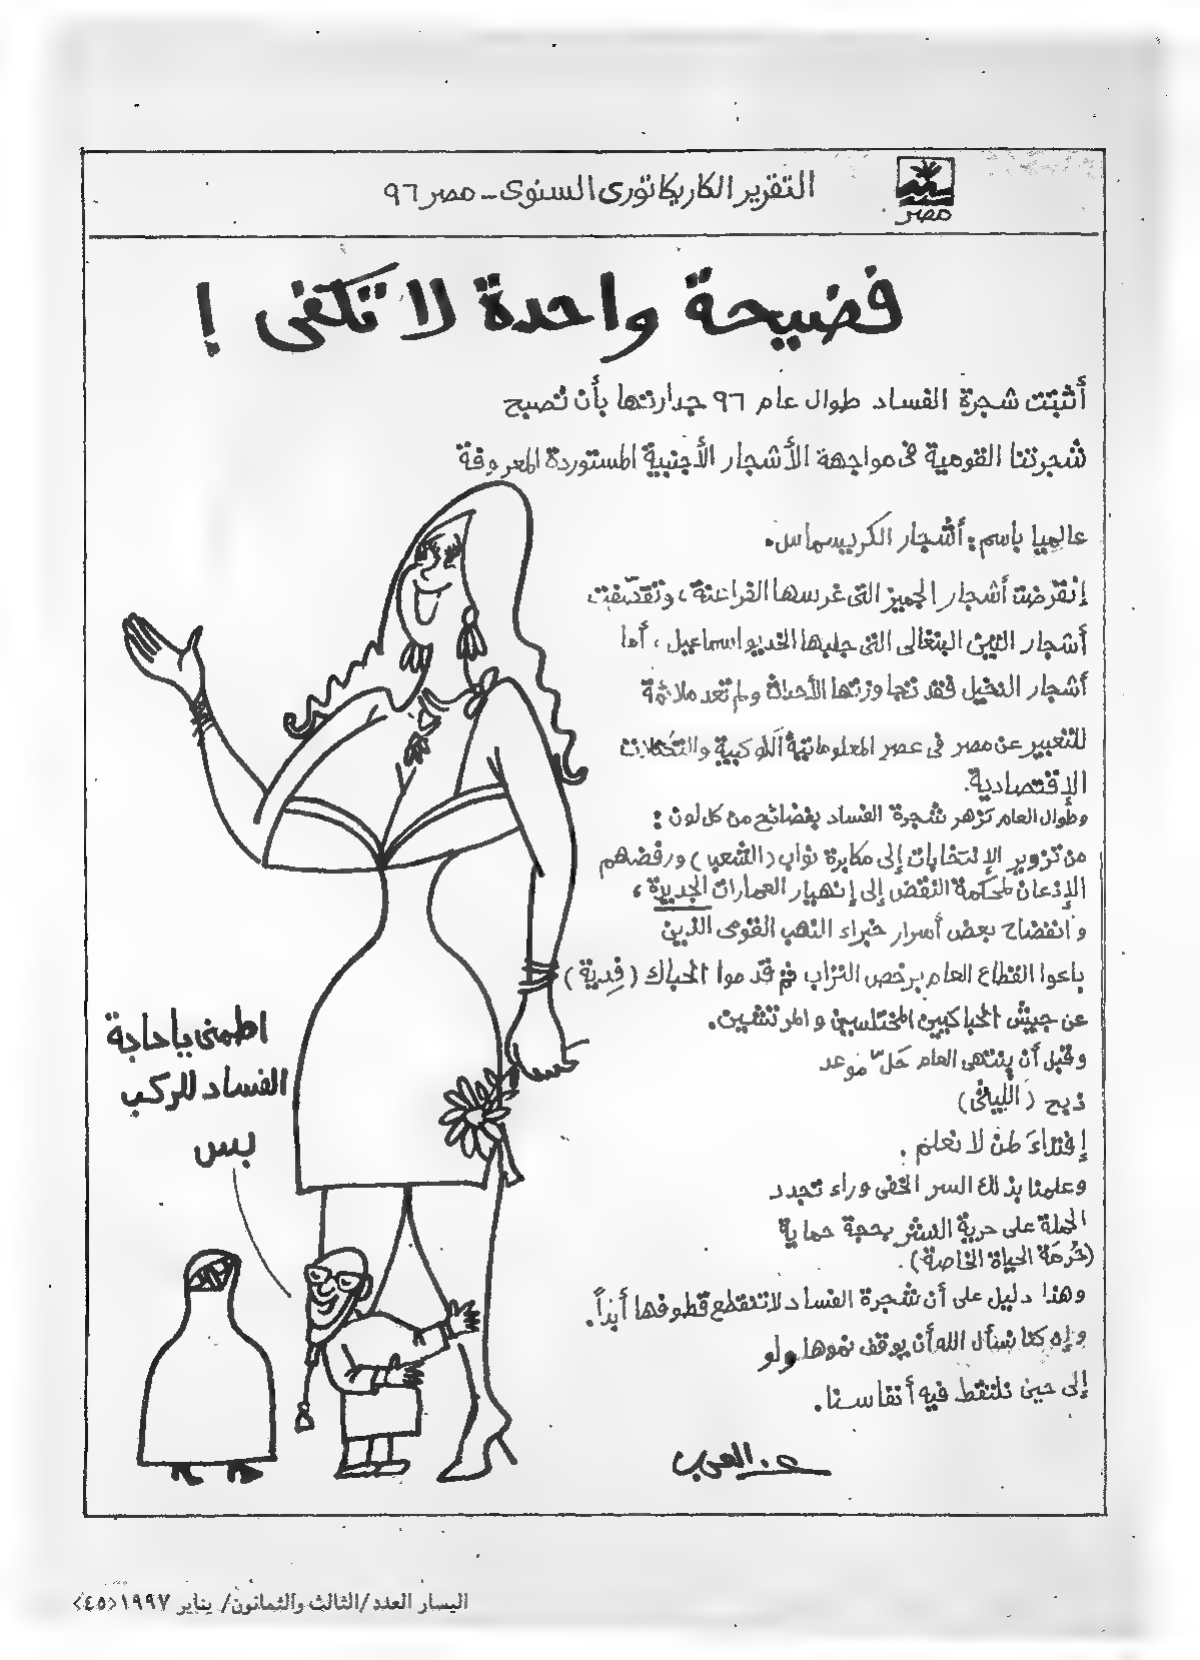 التقرير الكاريكاتورى السنوى - مصر ٩٦
مصر
فضيحة واحدة لا تكفى !
أثبتت شجرة الفساد طوال عام ٩٦ جدارتها بأن تصبح
شجرتنا القومية فى مواجهة الأشجار الأجنبية المستوردة المعروفة
عالميا باسم : أشجار الكريسماس.
إنقرضت أشجار الجميز التى غرسها الفراعنة ، وتقصّفت
أشجار التين البنغالى التى جلبها الخديو اسماعيل ، أما
أشجار النخيل فقد تجاوزتها الأحداث ولم تعد ملائمة
للتعبير عن مصر فى عصر المعلوماتية الكوكبية والتكتلات
الإقتصادية.
وطوال العام تزهر شجرة الفساد بفضائح من كل لون :
من تزوير الإنتخابات إلى مكابرة نواب (الشعب) ورفضهم
الإذعان لمحكمة النقض إلى إنهيار العمارات الجديدة ،
وانفضاح بعض أسرار خبراء النهب القومى الذين
باعوا القطاع العام برخص التراب ثم قدموا الحباك (فِدية)
عن جيش الحباكيين المختلسين والمرتشين.
وقبل أن ينتهى العام حَلّ موعد
ذبح (الليثى)
إفتداءَ لمن لا نعلم .
وعلمنا بذلك السر الخفى وراء تجدد
الحملة على حرية النشر بحجة حماية
(حُرمَة الحياة الخاصة).
وهذا دليل على أن شجرة الفساد لا تنقطع قطوفها أبداً.
وإن كنا نسأل الله أن يوقف نموها ولو
إلى حين نلتقط فيه أنفاسنا.
اطمنى يا حاجة
الفساد للركب
بس
عز العرب
اليسار العدد /الثالث والثمانون/ يناير ١٩٩٧<٤٥>